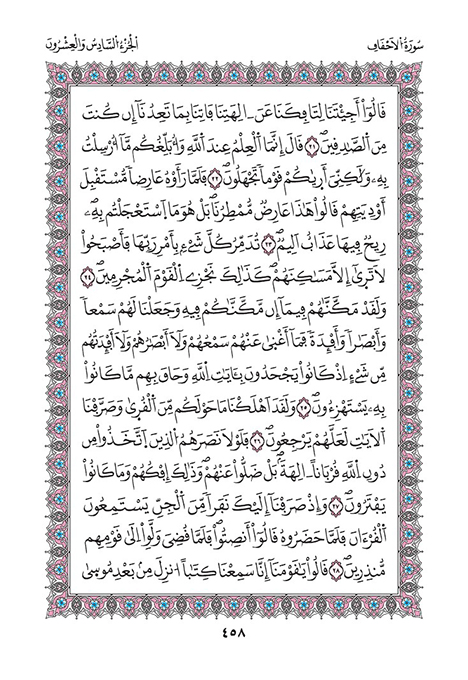 سُورَةُ الْأَحْقَافِ
الْجُزْءُ السَّادِسُ وَالْعِشْرُونَ
قَالُوٓاْ أَجِئْتَنَا لِتَافِكَنَا عَنَ ـ الِهَتِنَا فَاتِنَا بِمَا تَعِدُنَآ إِن كُنتَ
مِنَ اَلصَّٰدِقِينَۖ ٢١ قَالَ إِنَّمَا اَلْعِلْمُ عِندَ اَللَّهِ وَأُبَلِّغُكُم مَّآ أُرْسِلْتُ
بِهِۦ وَلَٰكِنِّيَ أَر۪يٰكُمْ قَوْماٗ تَجْهَلُونَۖ ٢٢ فَلَمَّا رَأَوْهُ عَارِضاٗ مُّسْتَقْبِلَ
أَوْدِيَتِهِمْ قَالُواْ هَٰذَا عَارِضٞ مُّمْطِرُنَاۖ بَلْ هُوَ مَا اَ۪سْتَعْجَلْتُم بِهِۦۖ
رِيحٞ فِيهَا عَذَابٌ اَلِيمٞۖ ٢٣ تُدَمِّرُ كُلَّ شَےْءِۢ بِأَمْرِ رَبِّهَا فَأَصْبَحُواْ
لَا تَر۪ىٰٓ إِلَّا مَسَٰكِنَهُمْۖ كَذَٰلِكَ نَجْزِے اِ۬لْقَوْمَ اَ۬لْمُجْرِمِينَۖ ٢٤
وَلَقَدْ مَكَّنَّٰهُمْ فِيمَآ إِن مَّكَّنَّٰكُمْ فِيهِ وَجَعَلْنَا لَهُمْ سَمْعاٗ
وَأَبْصَٰراٗ وَأَفْـِٕدَةٗ فَمَآ أَغْن۪ىٰ عَنْهُمْ سَمْعُهُمْ وَلَآ أَبْصَٰرُهُمْ وَلَآ أَفْـِٕدَتُهُم
مِّن شَےْءٍ اِذْ كَانُواْ يَجْحَدُونَ بِـَٔايَٰتِ اِ۬للَّهِ وَحَاقَ بِهِم مَّا كَانُواْ
بِهِۦ يَسْتَهْزِءُونَۖ ٢٥ وَلَقَدَ اَهْلَكْنَا مَا حَوْلَكُم مِّنَ اَ۬لْقُر۪ىٰ وَصَرَّفْنَا
اَ۬لْأيَٰتِ لَعَلَّهُمْ يَرْجِعُونَۖ ٢٦ فَلَوْلَا نَصَرَهُمُ اُ۬لذِينَ اَ۪تَّخَذُواْ مِن
دُونِ اِ۬للَّهِ قُرْبَاناً اٰلِهَةَۢۖ بَلْ ضَلُّواْ عَنْهُمْۖ وَذَٰلِكَ إِفْكُهُمْ وَمَا كَانُواْ
يَفْتَرُونَۖ ٢٧ وَإِذْ صَرَفْنَآ إِلَيْكَ نَفَراٗ مِّنَ اَ۬لْجِنِّ يَسْتَمِعُونَ
اَ۬لْقُرْءَانَ فَلَمَّا حَضَرُوهُ قَالُوٓاْ أَنصِتُواْۖ فَلَمَّا قُضِيَ وَلَّوِاْ اِلَىٰ قَوْمِهِم
مُّنذِرِينَۖ ٢٨ قَالُواْ يَٰقَوْمَنَآ إِنَّا سَمِعْنَا كِتَٰباً ا۟نزِلَ مِنۢ بَعْدِ مُوس۪ىٰ
٤٥٨